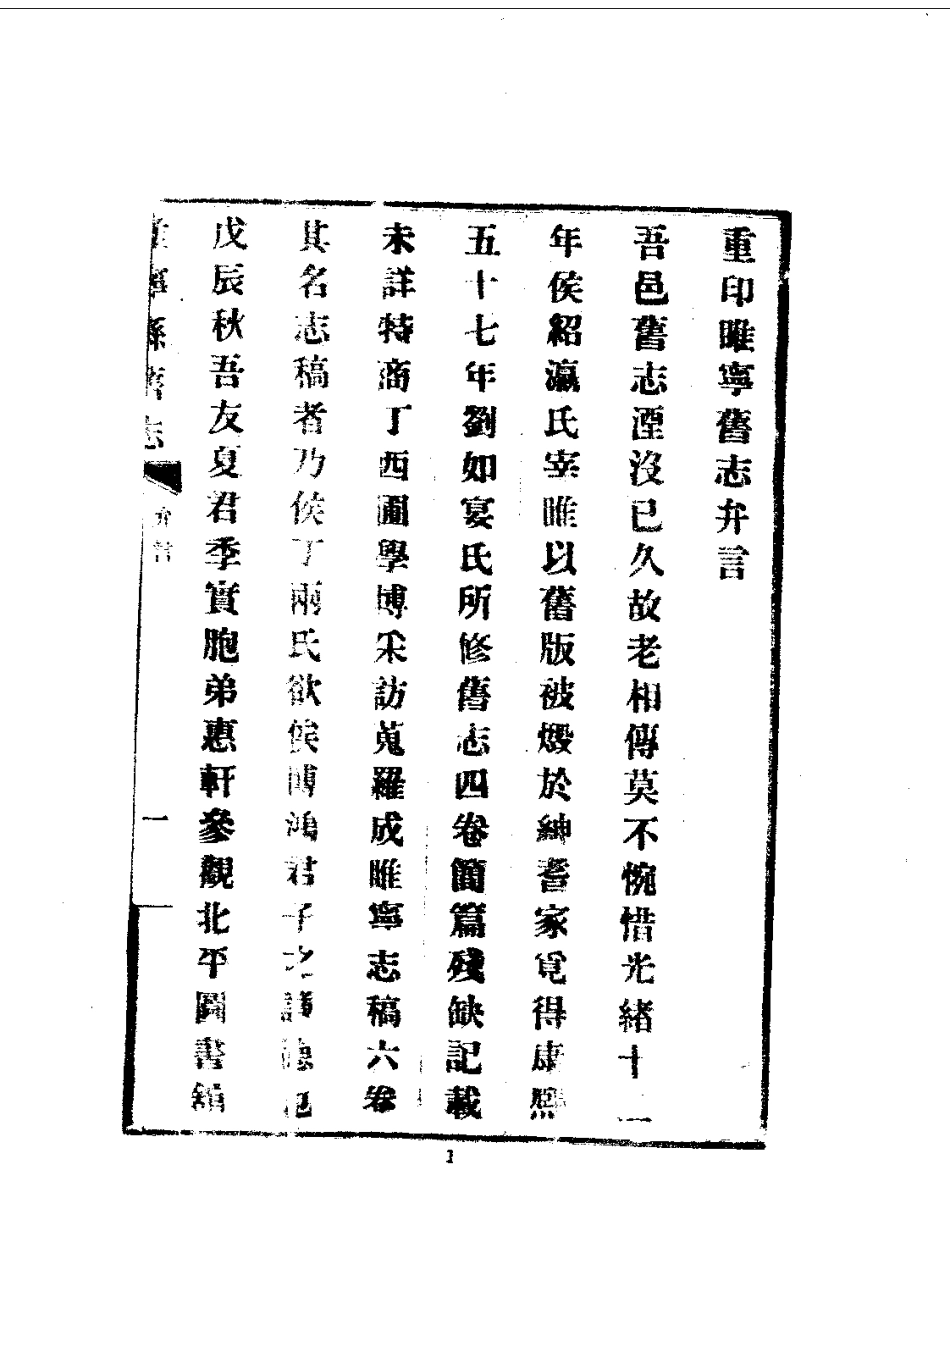 重印睢寧舊志弁言
吾邑舊志湮沒已久故老相傳莫不惋惜光緒十一
年侯紹瀛氏宰睢以舊版被燬於紳耆家覓得康熙
五十七年劉如宴氏所修舊志四卷簡篇殘缺記載
未詳特商丁西圃學博采訪蒐羅成睢寧志稿六卷
其名志稿者乃侯丁兩氏欲俟博鴻君子之謙德也
戊辰秋吾友夏君季實胞弟惠軒參觀北平圖書館
睢寧縣舊志
弁言
一
1